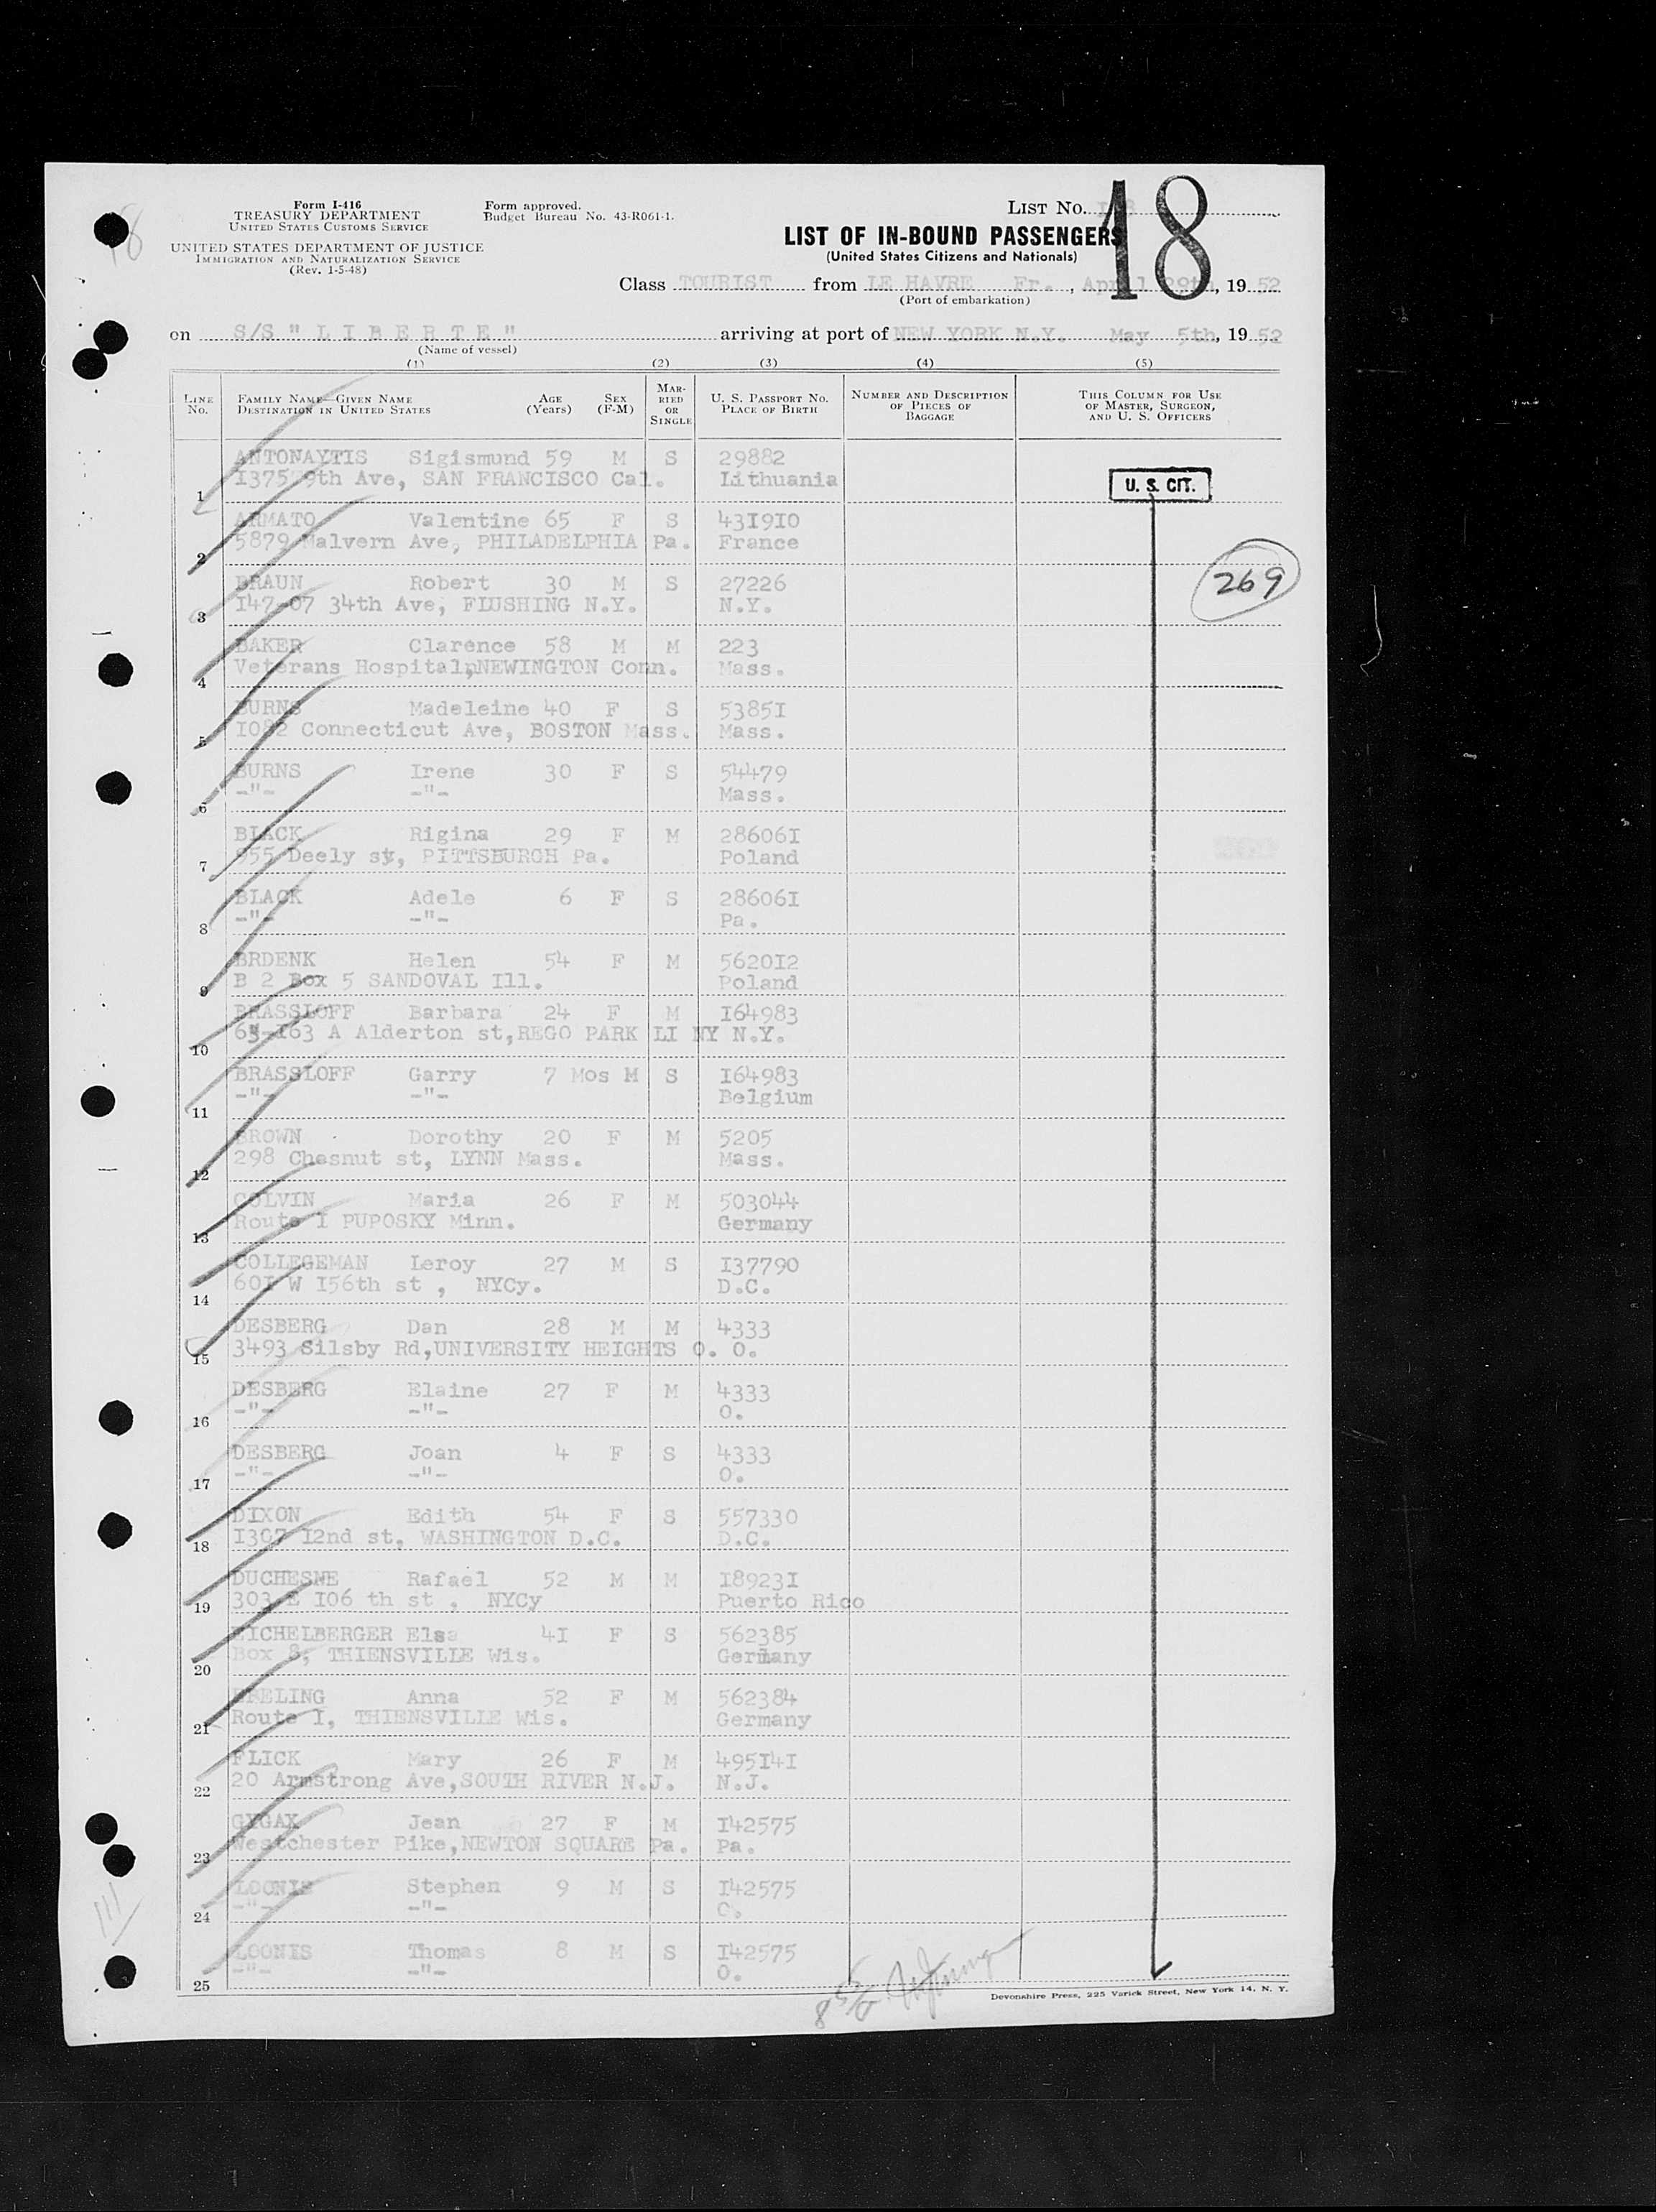 Form I-416
TREASURY DEPARTMENT
UNITED STATES CUSTOMS SERVICE
UNITED STATES DEPARTMENT OF JUSTICE
IMMIGRATION AND NATURALIZATION SERVICE
(Rev. 1-5-48)
Form approved.
Budget Bureau No. 43-R061-1.
LIST No.
18
LIST OF IN-BOUND PASSENGERS
(United States Citizens and Nationals)
Class TOURIST from LE HAVRE Fr., April 29th, 1952
(Port of embarkation)
on S/S " L I B E R T E " arriving at port of NEW YORK N.Y. May 5th, 1952
(Name of vessel)
(1) (2) (3) (4) (5)
LINE No. FAMILY NAME—GIVEN NAME DESTINATION IN UNITED STATES AGE (Years) SEX (F-M) MARRIED OR SINGLE U. S. PASSPORT NO. PLACE OF BIRTH NUMBER AND DESCRIPTION OF PIECES OF BAGGAGE THIS COLUMN FOR USE OF MASTER, SURGEON, AND U. S. OFFICERS
ANTONAYTIS Sigismund 59 M S 29882
1 I375 9th Ave, SAN FRANCISCO Cal. Lithuania
U. S. CIT.
ARMATO Valentine 65 F S 43I9I0
2 5879 Malvern Ave, PHILADELPHIA Pa. France
269
BRAUN Robert 30 M S 27226
3 I47-07 34th Ave, FLUSHING N.Y. N.Y.
BAKER Clarence 58 M M 223
4 Veterans Hospital, NEWINGTON Conn. Mass.
BURNS Madeleine 40 F S 5385I
5 I082 Connecticut Ave, BOSTON Mass. Mass.
BURNS Irene 30 F S 54479
6 -"- -"- Mass.
BLACK Rigina 29 F M 28606I
7 955 Deely st, PITTSBURGH Pa. Poland
BLACK Adele 6 F S 28606I
8 -"- -"- Pa.
BRDENK Helen 54 F M 5620I2
9 B 2 Box 5 SANDOVAL Ill. Poland
BRASSLOFF Barbara 24 F M I64983
10 65-I63 A Alderton st,REGO PARK LI NY N.Y.
BRASSLOFF Garry 7 Mos M S I64983
11 -"- -"- Belgium
BROWN Dorothy 20 F M 5205
12 298 Chesnut st, LYNN Mass. Mass.
COLVIN Maria 26 F M 503044
13 Route I PUPOSKY Minn. Germany
COLLEGEMAN Leroy 27 M S I37790
14 60I W I56th st , NYCy. D.C.
DESBERG Dan 28 M M 4333
15 3493 Silsby Rd,UNIVERSITY HEIGHTS O. O.
DESBERG Elaine 27 F M 4333
16 -"- -"- O.
DESBERG Joan 4 F S 4333
17 -"- -"- O.
DIXON Edith 54 F S 557330
18 I307 I2nd st, WASHINGTON D.C. D.C.
DUCHESNE Rafael 52 M M I8923I
19 303 E I06 th st , NYCy Puerto Rico
EICHELBERGER Elsa 4I F S 562385
20 Box 8, THIENSVILLE Wis. Germany
EBELING Anna 52 F M 562384
21 Route I, THIENSVILLE Wis. Germany
FLICK Mary 26 F M 495I4I
22 20 Armstrong Ave,SOUTH RIVER N.J. N.J.
GYGAX Jean 27 F M I42575
23 Westchester Pike,NEWTON SQUARE Pa. Pa.
LOONIS Stephen 9 M S I42575
24 -"- -"- O.
LOONIS Thomas 8 M S I42575
25 -"- -"- O.
Devonshire Press, 225 Varick Street, New York 14, N. Y.